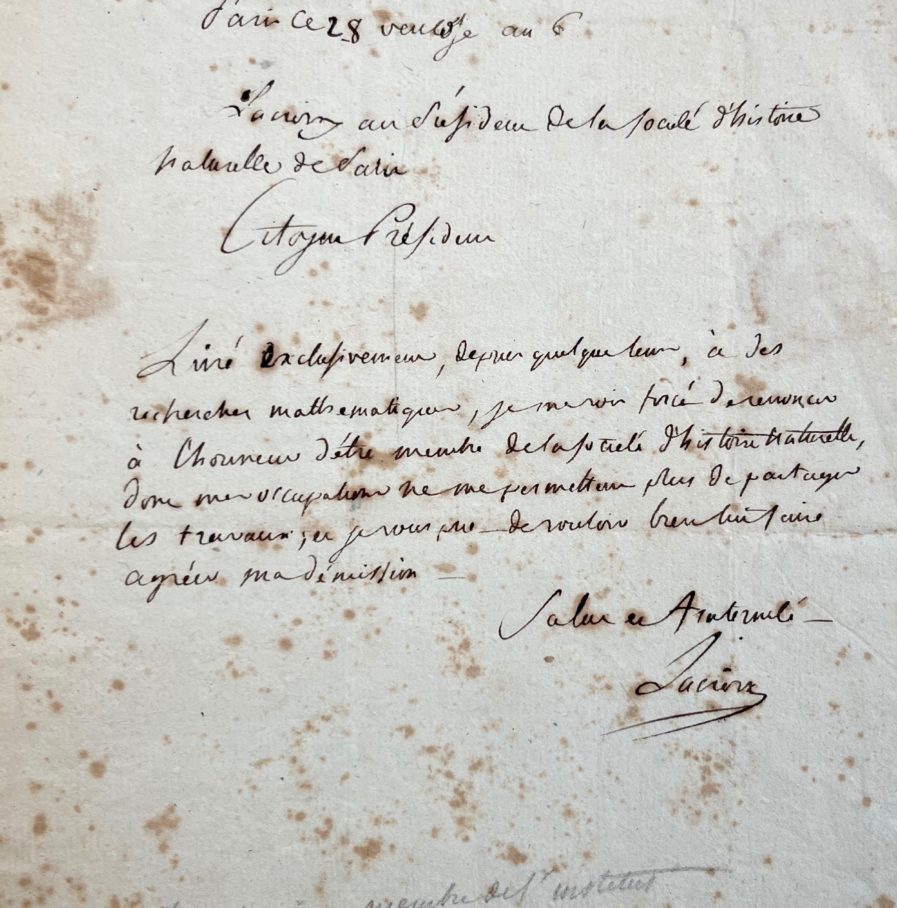 Paris ce 28 ventose an 6
Lacroix au Président de la société d'histoire
naturelle de Paris
Citoyen Président
Livré exclusivement, depuis quelque tems, à des
recherches mathematiques, je me vois forcé de renoncer
à l'honneur d'être membre de la société d'histoire naturelle,
dont mes occupations ne me permettent plus de partager
les travaux; et je vous prie de vouloir bien lui faire
agréer ma démission
Salut et Fraternité
Lacroix
membre de l'institut